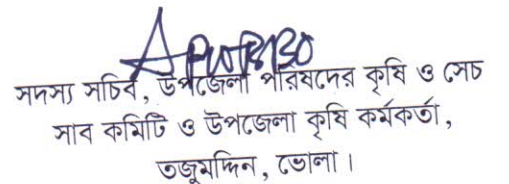 সদস্য সচিব, উপজেলা পরিষদের কৃষি ও সেচ
সাব কমিটি ও উপজেলা কৃষি কর্মকর্তা,
তজুমদ্দিন, ভোলা।